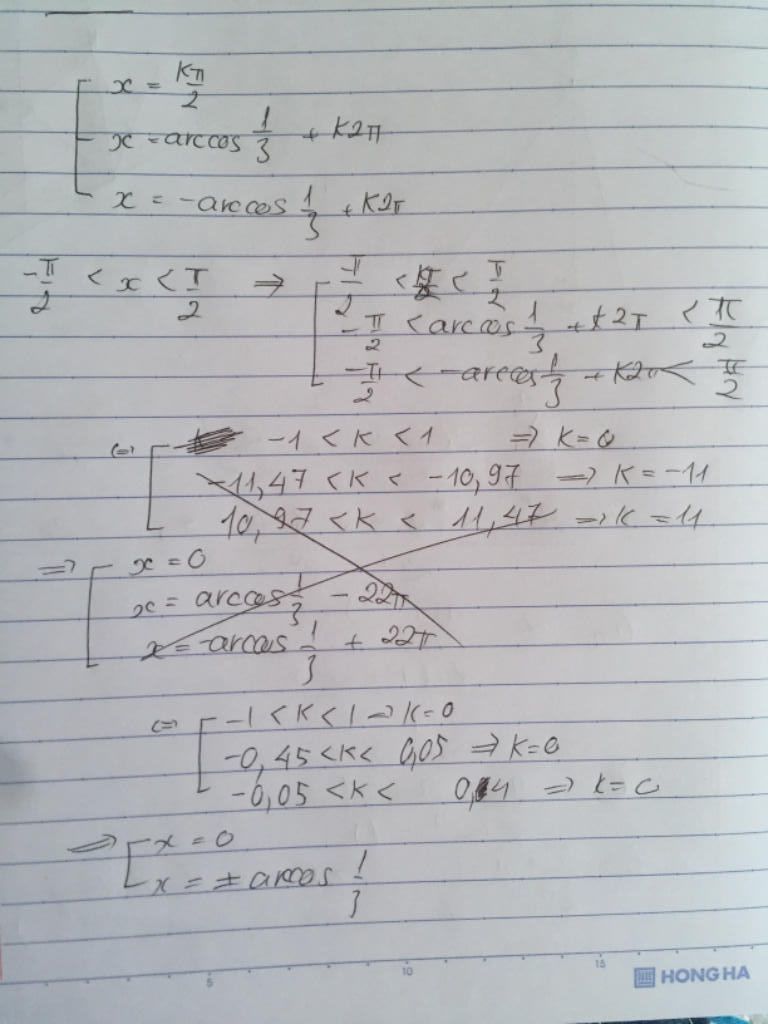 x = kπ/2
x = arccos 1/3 + k2π
x = -arccos 1/3 + k2π
-π/2 < x < π/2 ⇒ -π/2 < kπ/2 < π/2
-π/2 < arccos 1/3 + k2π < π/2
-π/2 < -arccos 1/3 + k2π < π/2
(=) -1 < k < 1 ⇒ k = 0
-11,47 < k < -10,97 ⇒ k = -11
10,97 < k < 11,47 ⇒ k = 11
⇒ x = 0
x = arccos 1/3 - 22π
x = -arccos 1/3 + 22π
(=) -1 < k < 1 ⇒ k = 0
-0,45 < k < 0,05 ⇒ k = 0
-0,05 < k < 0,44 ⇒ k = 0
⇒ x = 0
x = ± arccos 1/3
5 10 15
HONG HA